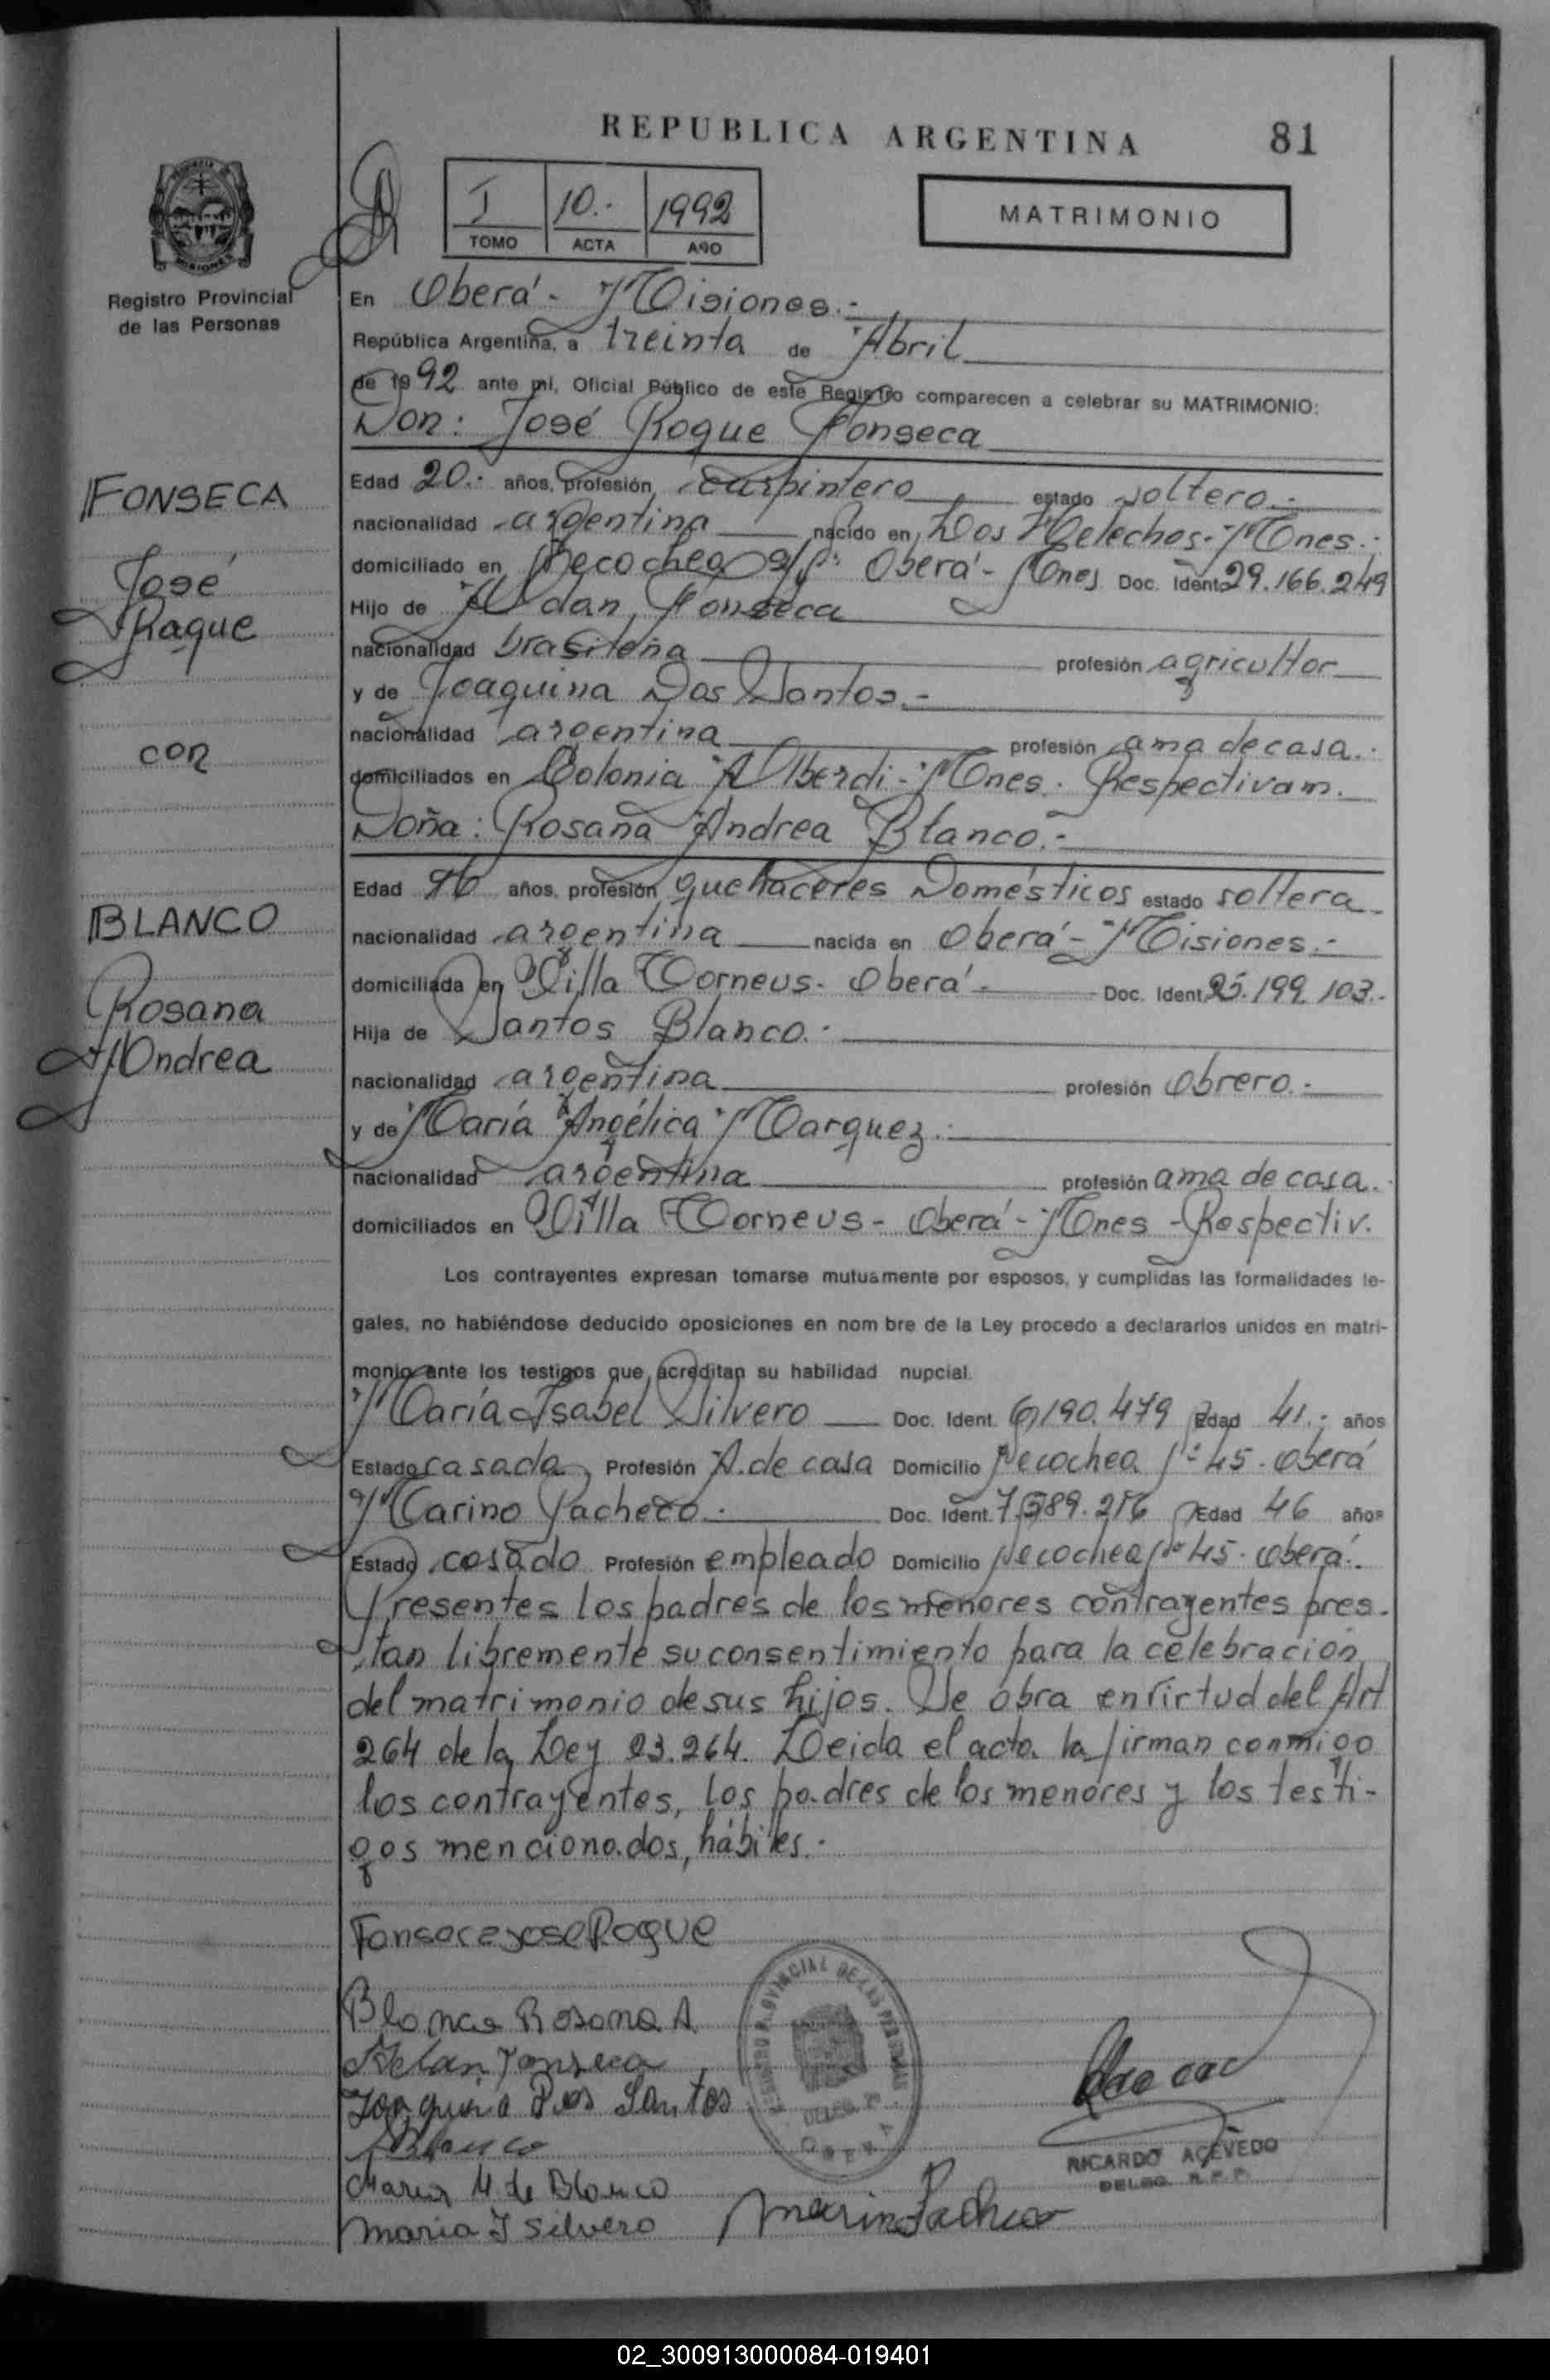 REPUBLICA ARGENTINA 81
I 10.- 1992
TOMO ACTA AÑO
MATRIMONIO
Registro Provincial
de las Personas
En Oberá - Misiones.-
República Argentina, a treinta de Abril
de 1992 ante mi, Oficial Público de este Registro comparecen a celebrar su MATRIMONIO:
Don: José Roque Fonseca
FONSECA
José
Roque
con
BLANCO
Rosana
Andrea
Edad 20.- años, profesión, carpintero estado soltero.-
nacionalidad argentina nacido en, Dos Helechos - Mnes.-
domiciliado en Necochea s/n: Oberá - Mnes Doc. Ident. 29.166.249
Hijo de Adan, Fonseca
nacionalidad brasileña profesión agricultor
y de Joaquina Dos Santos.-
nacionalidad argentina profesión ama de casa.-
domiciliados en Colonia Alberdi - Mnes. Respectivam.
Doña: Rosana Andrea Blanco.-
Edad años, profesión, quehaceres Domésticos estado soltera
nacionalidad argentina nacida en Oberá - Misiones.-
domiciliada en Villa Torneus - Oberá - Doc. Ident. 25.199.103.-
Hija de Santos Blanco.-
nacionalidad argentina profesión obrero.-
y de María Angélica Marquez.-
nacionalidad argentina profesión ama de casa.
domiciliados en Villa Torneus - Oberá - Mnes - Respectiv.
Los contrayentes expresan tomarse mutuamente por esposos, y cumplidas las formalidades le-
gales, no habiéndose deducido oposiciones en nom bre de la Ley procedo a declararlos unidos en matri-
monio ante los testigos que acreditan su habilidad nupcial.
María Isabel Silvero Doc. Ident. 6,190.479 Edad 41.- años
Estado casada, Profesión A. de casa Domicilio Necochea Nº 45 - Oberá
Marino Pacheco.- Doc. Ident. 7.589.216 Edad 46 años
Estado casado Profesión empleado Domicilio Necochea Nº 45 - Oberá.-
Presentes los padres de los menores contrayentes pres-
tan libremente su consentimiento para la celebración
del matrimonio de sus hijos. Se obra en virtud del Art
264 de la Ley 23.264. Leida el acta la firman conmigo
los contrayentes, los padres de los menores y los testi-
gos mencionados, hábiles.-
Fonseca Jose Roque
Blanco Rosana A.
Adan Fonseca
Joaquina Dos Santos
Blanco
Maria M de Blanco
Maria I Silvero
Marino Pacheco
REGISTRO PROVINCIAL DE LAS PERSONAS
OBERA
RICARDO ACEVEDO
DELEG. R.P.P.
02_300913000084-019401